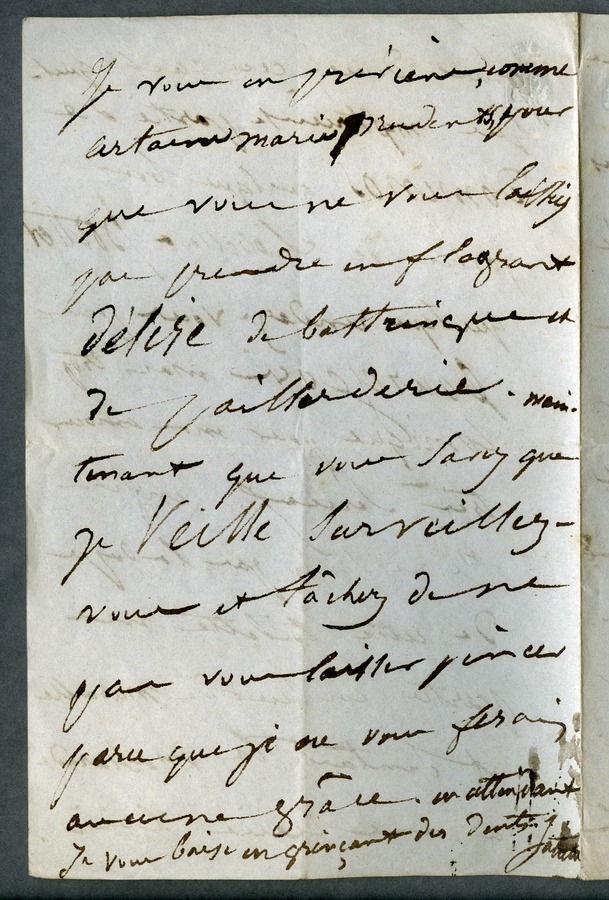 Je vous en préviens, comme
certains maris prudents, pour
que vous ne vous laissiez
pas prendre en flagrant
délire de et
de paillarderie. main-
tenant que vous savez que
je Veille Surveillez-
vous et tâchez de ne
pas vous laisser pincer
parce que je ne vous ferais
aucune grâce. en attendant
Je vous baise en grinçant des dents.